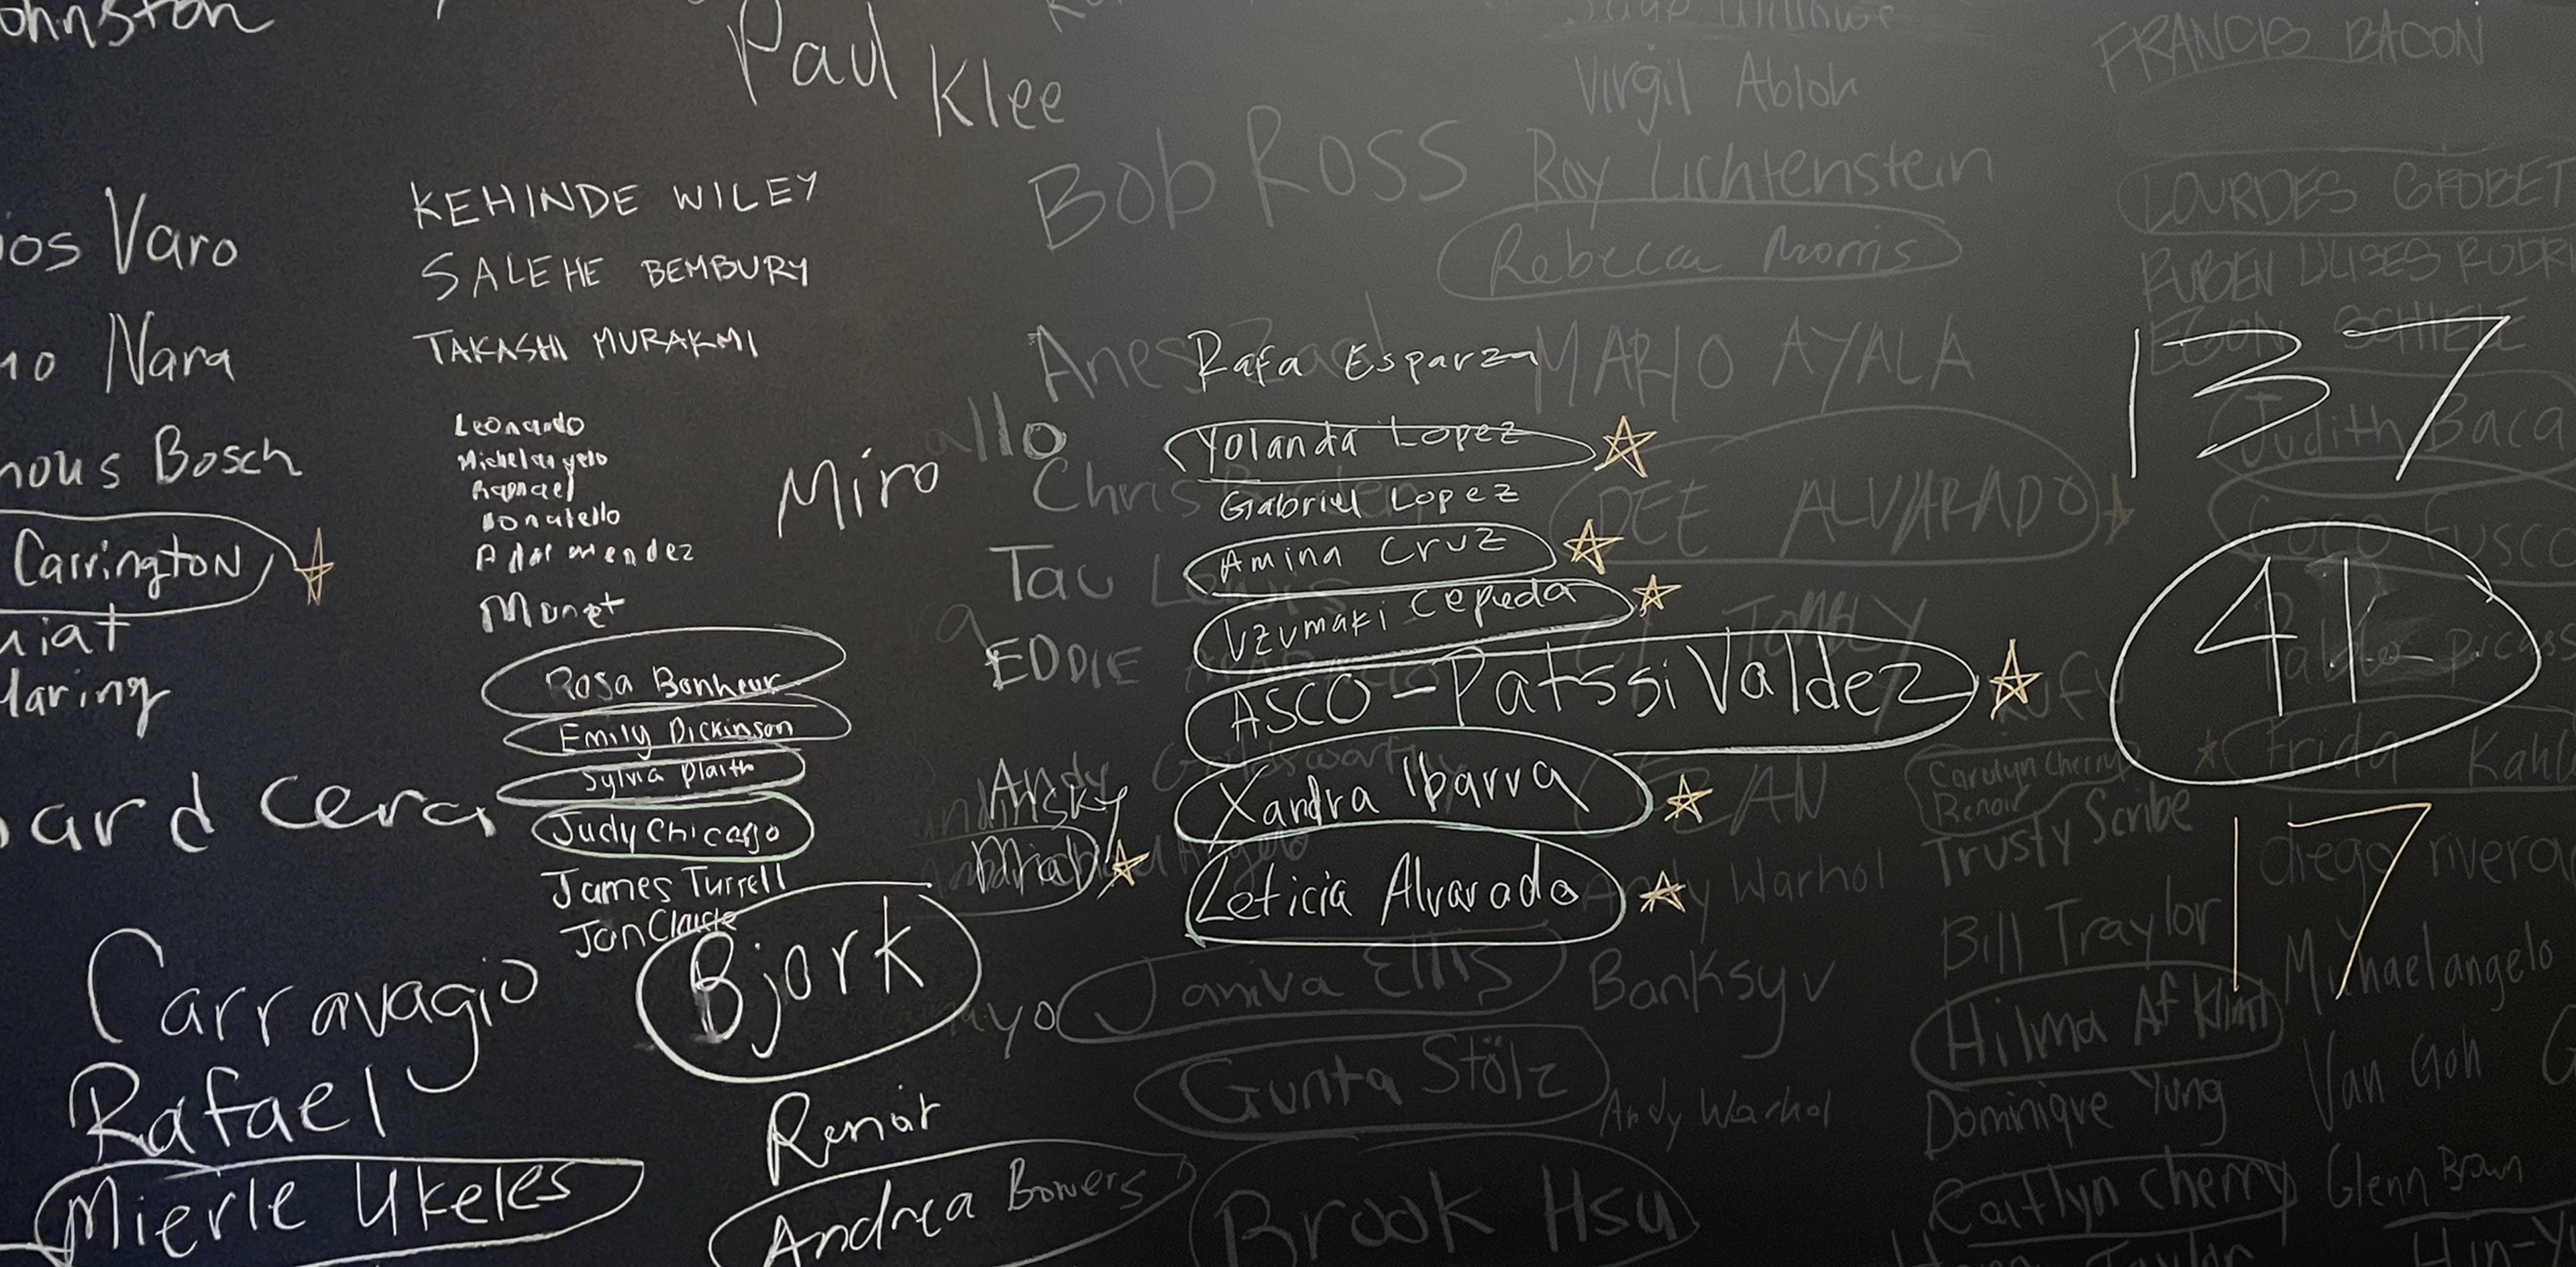 ohnston
Paul Klee
ios Varo
no Nara
nous Bosch
Carrington
uiat
Haring
ard cera
Carravagio
Rafael
Mierle Ukeles
KEHINDE WILEY
SALEHE BEMBURY
TAKASHI MURAKMI
Leonardo
Michelangelo
Raphael
Donatello
mendez
Monet
Rosa Bonheur
Emily Dickinson
Sylvia Plaith
Judy Chicago
James Turrell
Jan Claude
Bjork
Renoir
Andrea Bowers
Miro
allo
Bob Ross
Virgil Abloh
Roy Lichtenstein
Rebecca Morris
Anes
Rafa Esparza
MARIO AYALA
Yolanda Lopez
Chris
Gabriel Lopez
DEE ALVARADO
Tau Lewis
Amina Cruz
Uzumaki Cepeda
EDDIE
ASCO - Patssi Valdez
Andy Goldsworthy
Xandra Ibarra
Leticia Alvarado
Andy Warhol
Janiva Ellis
Banksy
Gunta Stölz
Andy Warhol
Brook Hsu
FRANCIS BACON
LOURDES GROBET
RUBEN ULISES RODRI
EGON SCHIELE
137
Judith Baca
Coco Fusco
41
Pablo Picass
Frida Kahl
Carolyn Cherry
Renoir
Trusty Scribe
17
diego rivera
Bill Traylor
Michaelangelo
Hilma Af Klint
Van Goh
Dominique Yung
Caitlyn cherry
Glenn Brown
Taylor